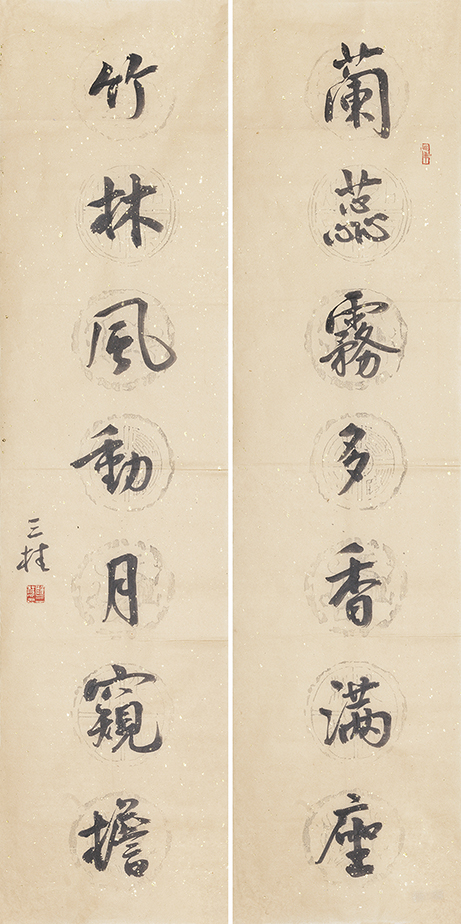 蘭蕊霧多香滿座
竹林風動月窺檐
三桂